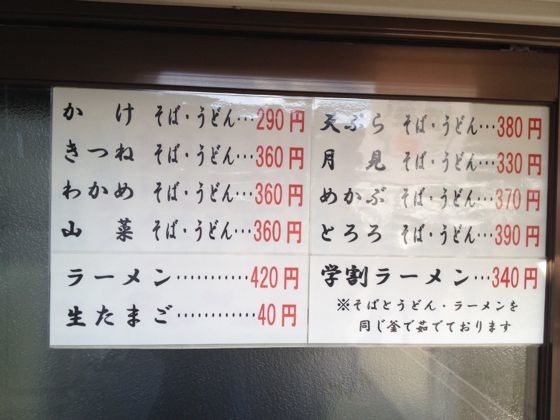 かけ そば・うどん…290円
きつね そば・うどん…360円
わかめ そば・うどん…360円
山菜 そば・うどん…360円
ラーメン…………420円
生たまご…………40円
天ぷら そば・うどん…380円
月見 そば・うどん…330円
めかぶ そば・うどん…370円
とろろ そば・うどん…390円
学割ラーメン…340円
※そばとうどん・ラーメンを
同じ釜で茹でております